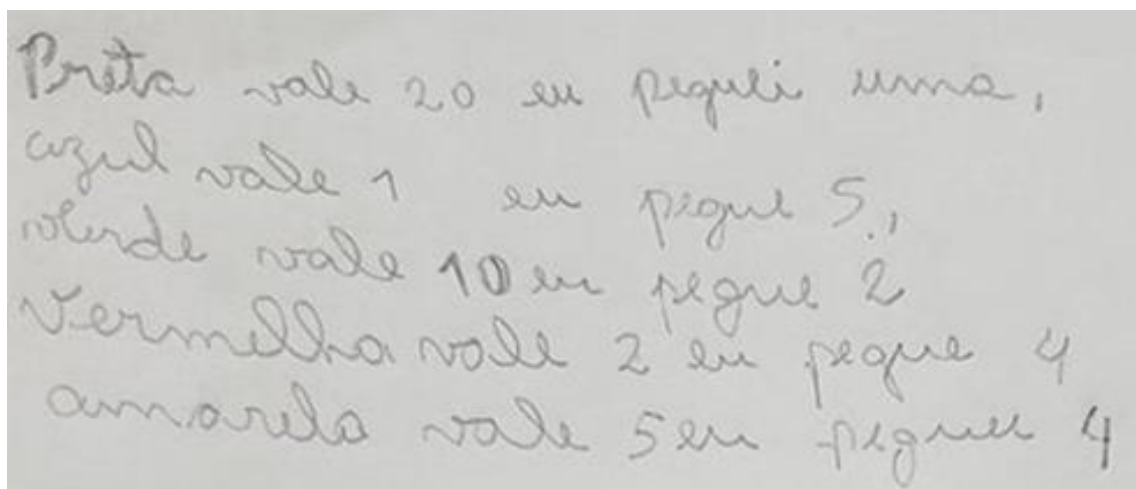 Preta vale 20 eu peguei uma,
azul vale 1 eu pegue 5,
verde vale 10 eu pegue 2
Vermelha vale 2 eu pegue 4
amarela vale 5 eu peguei 4